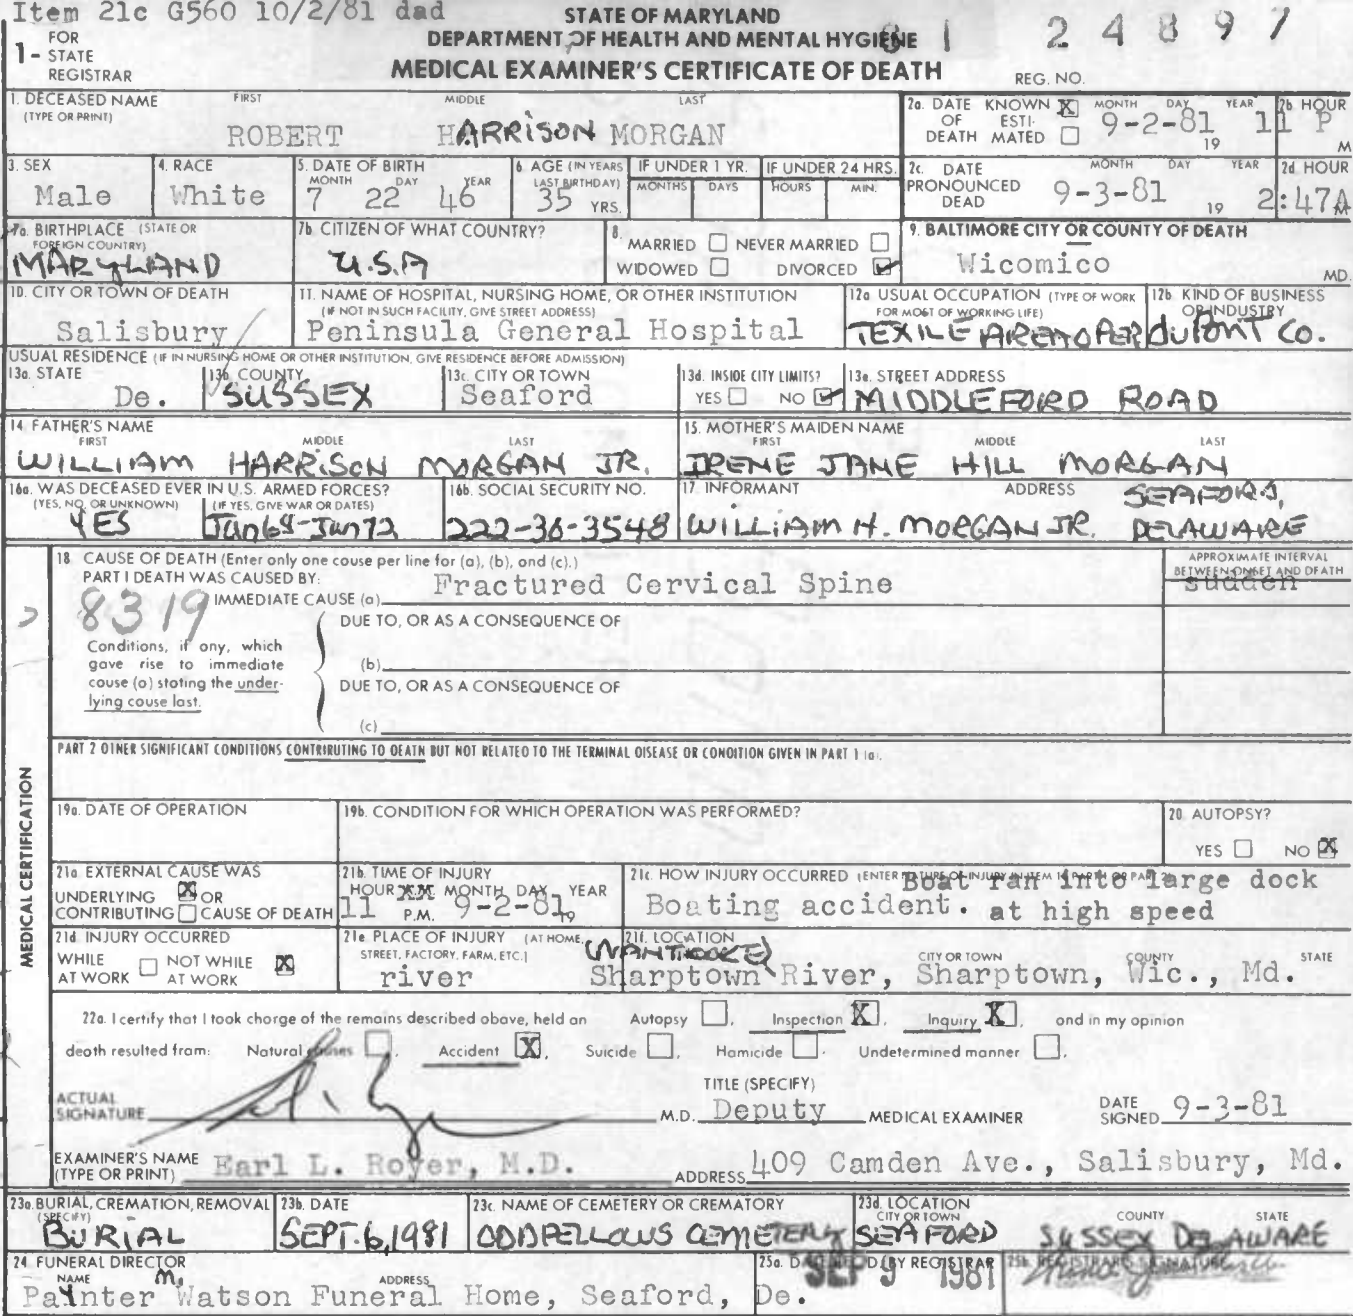 Item 21c G560 10/2/81 dad
STATE OF MARYLAND
DEPARTMENT OF HEALTH AND MENTAL HYGIENE
81 24897
1- FOR STATE REGISTRAR
MEDICAL EXAMINER'S CERTIFICATE OF DEATH
REG. NO.
1. DECEASED NAME (TYPE OR PRINT) FIRST MIDDLE LAST
ROBERT HARRISON MORGAN
2a. DATE OF DEATH KNOWN X ESTIMATED MONTH DAY YEAR 9-2-81 19
2b. HOUR 11 P M
3. SEX Male
4. RACE White
5. DATE OF BIRTH MONTH DAY YEAR 7 22 46
6. AGE (IN YEARS LAST BIRTHDAY) 35 YRS.
IF UNDER 1 YR. MONTHS DAYS
IF UNDER 24 HRS. HOURS MIN.
2c. DATE PRONOUNCED DEAD MONTH DAY YEAR 9-3-81 19
2d. HOUR 2:47A M
7a. BIRTHPLACE (STATE OR FOREIGN COUNTRY) MARYLAND
7b. CITIZEN OF WHAT COUNTRY? U.S.A
8. MARRIED NEVER MARRIED
WIDOWED DIVORCED ✓
9. BALTIMORE CITY OR COUNTY OF DEATH
Wicomico MD.
10. CITY OR TOWN OF DEATH Salisbury
11. NAME OF HOSPITAL, NURSING HOME, OR OTHER INSTITUTION
(IF NOT IN SUCH FACILITY, GIVE STREET ADDRESS)
Peninsula General Hospital
12a. USUAL OCCUPATION (TYPE OF WORK FOR MOST OF WORKING LIFE)
TEXILE AREA OPER
12b. KIND OF BUSINESS OR INDUSTRY
DUPONT CO.
USUAL RESIDENCE (IF IN NURSING HOME OR OTHER INSTITUTION, GIVE RESIDENCE BEFORE ADMISSION)
13a. STATE De.
13b. COUNTY SUSSEX
13c. CITY OR TOWN Seaford
13d. INSIDE CITY LIMITS? YES NO ✓
13e. STREET ADDRESS MIDDLEFORD ROAD
14. FATHER'S NAME FIRST MIDDLE LAST
WILLIAM HARRISON MORGAN JR.
15. MOTHER'S MAIDEN NAME FIRST MIDDLE LAST
IRENE JANE HILL MORGAN
16a. WAS DECEASED EVER IN U.S. ARMED FORCES?
(YES, NO, OR UNKNOWN) (IF YES, GIVE WAR OR DATES)
YES Jan68-Jan72
16b. SOCIAL SECURITY NO.
222-36-3548
17. INFORMANT ADDRESS
WILLIAM H. MORGAN JR. SEAFORD, DELAWARE
MEDICAL CERTIFICATION
18. CAUSE OF DEATH (Enter only one cause per line for (a), (b), and (c).)
PART I DEATH WAS CAUSED BY:
IMMEDIATE CAUSE (a) Fractured Cervical Spine
APPROXIMATE INTERVAL BETWEEN ONSET AND DEATH
sudden
8319
DUE TO, OR AS A CONSEQUENCE OF
Conditions, if any, which gave rise to immediate cause (a) stating the underlying cause last.
(b)
DUE TO, OR AS A CONSEQUENCE OF
(c)
PART 2 OTHER SIGNIFICANT CONDITIONS CONTRIBUTING TO DEATH BUT NOT RELATED TO THE TERMINAL DISEASE OR CONDITION GIVEN IN PART 1 (a).
19a. DATE OF OPERATION
19b. CONDITION FOR WHICH OPERATION WAS PERFORMED?
20. AUTOPSY?
YES NO X
21a. EXTERNAL CAUSE WAS
UNDERLYING X OR
CONTRIBUTING CAUSE OF DEATH
21b. TIME OF INJURY
HOUR XX MONTH DAY YEAR
11 P.M. 9-2-81 19
21c. HOW INJURY OCCURRED (ENTER NATURE OF INJURY IN ITEM 18 PART 1 OR PART 2)
Boat ran into large dock
Boating accident. at high speed
21d. INJURY OCCURRED
WHILE AT WORK NOT WHILE AT WORK X
21e. PLACE OF INJURY (AT HOME, STREET, FACTORY, FARM, ETC.)
river
21f. LOCATION CITY OR TOWN COUNTY STATE
(NANTICOKE)
Sharptown River, Sharptown, Wic., Md.
22a. I certify that I took charge of the remains described above, held an Autopsy, Inspection X, Inquiry X, and in my opinion
death resulted from: Natural causes, Accident X, Suicide, Homicide, Undetermined manner.
ACTUAL SIGNATURE M.D.
TITLE (SPECIFY) Deputy MEDICAL EXAMINER
DATE SIGNED 9-3-81
EXAMINER'S NAME (TYPE OR PRINT) Earl L. Royer, M.D.
ADDRESS 409 Camden Ave., Salisbury, Md.
23a. BURIAL, CREMATION, REMOVAL (SPECIFY) BURIAL
23b. DATE SEPT. 6, 1981
23c. NAME OF CEMETERY OR CREMATORY
ODDFELLOWS CEMETERY
23d. LOCATION CITY OR TOWN COUNTY STATE
SEAFORD SUSSEX DELAWARE
24. FUNERAL DIRECTOR NAME ADDRESS
Painter M. Watson Funeral Home, Seaford, De.
25a. DATE REC'D. BY REGISTRAR
SEP 9 1981
25b. REGISTRAR'S SIGNATURE